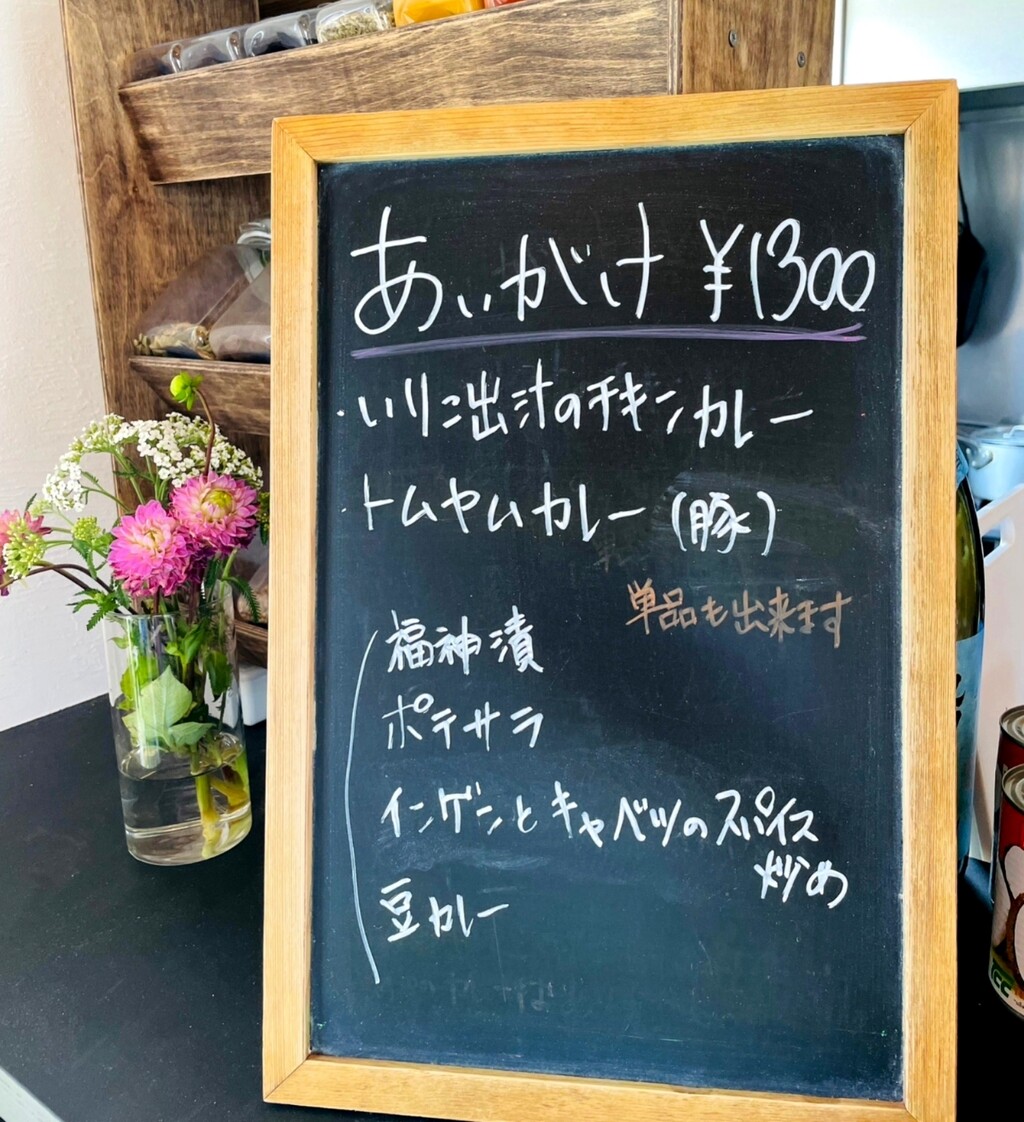 あいがけ ¥1300
・いりこ出汁のチキンカレー
・トムヤムカレー (豚)
単品も出来ます
福神漬
ポテサラ
インゲンとキャベツのスパイス
炒め
豆カレー